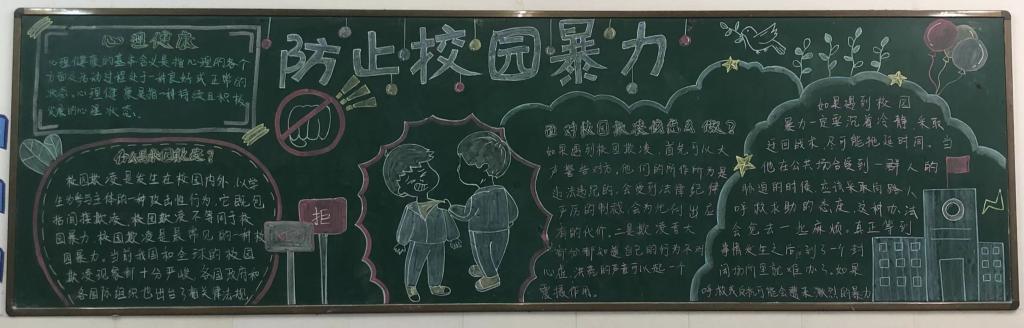 防止校园暴力
心理健康
心理健康的基本含义是指心理的各个
方面及活动过程处于一种良好或正常的
状态。心理健康是指一种持续且积极
发展的心理状态。
什么是校园欺凌？
校园欺凌是发生在校园内外、以学
生为参与主体的一种攻击性行为，它既包
括间接欺凌，校园欺凌不等同于校
园暴力，校园欺凌是最常见的一种校
园暴力。当前我国和全球的校园
欺凌现象到十分严峻，各国政府和
各国际组织也出台了相关律法规
拒
面对校园欺凌该怎么做？
如果遇到校园欺凌，首先可以大
声警告对方，他们的所作所为是
违法违纪的，会受到法律纪律
严厉的制裁，会为他们付出应
有的代价。二是欺凌者大
都知道自己的行为不对
心虚，洪亮的声音可以起一个
震慑作用。
如果遇到校园
暴力一定要沉着冷静，采取
迂回战术，尽可能拖延时间。当
他在公共场合受到一群人的
胁迫的时候，应该采取向路人
呼救求助的态度，这种办法
会免去一些麻烦。真正等到
事情发生之后，到了一个封
闭场所里就难办了。如果
呼救或反抗可能会遭来激烈的暴力